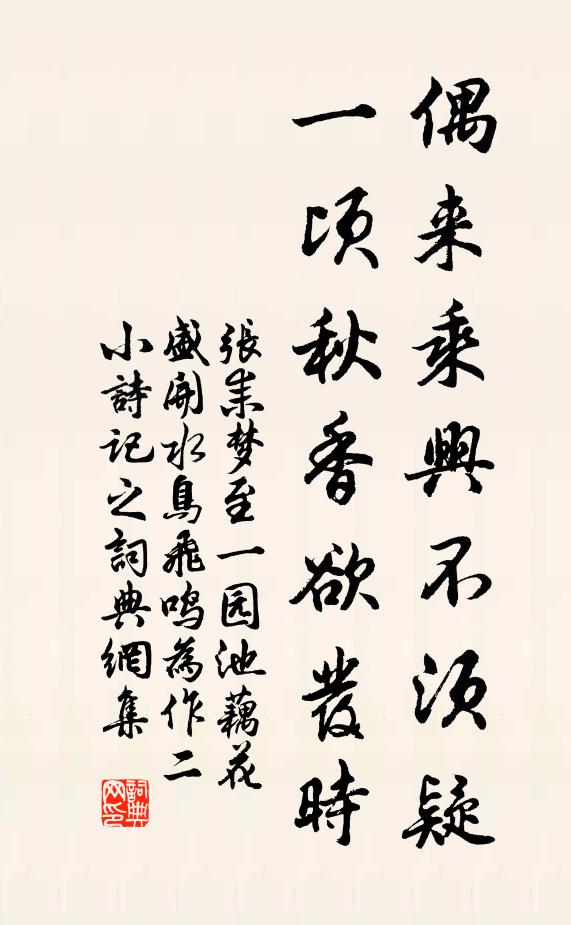 偶来乘興不须疑
一顷秋香欲發時
張耒梦至一园池藕花
盛開水鳥飛鸣為作二
小詩记之詞典網集
詞典
网印